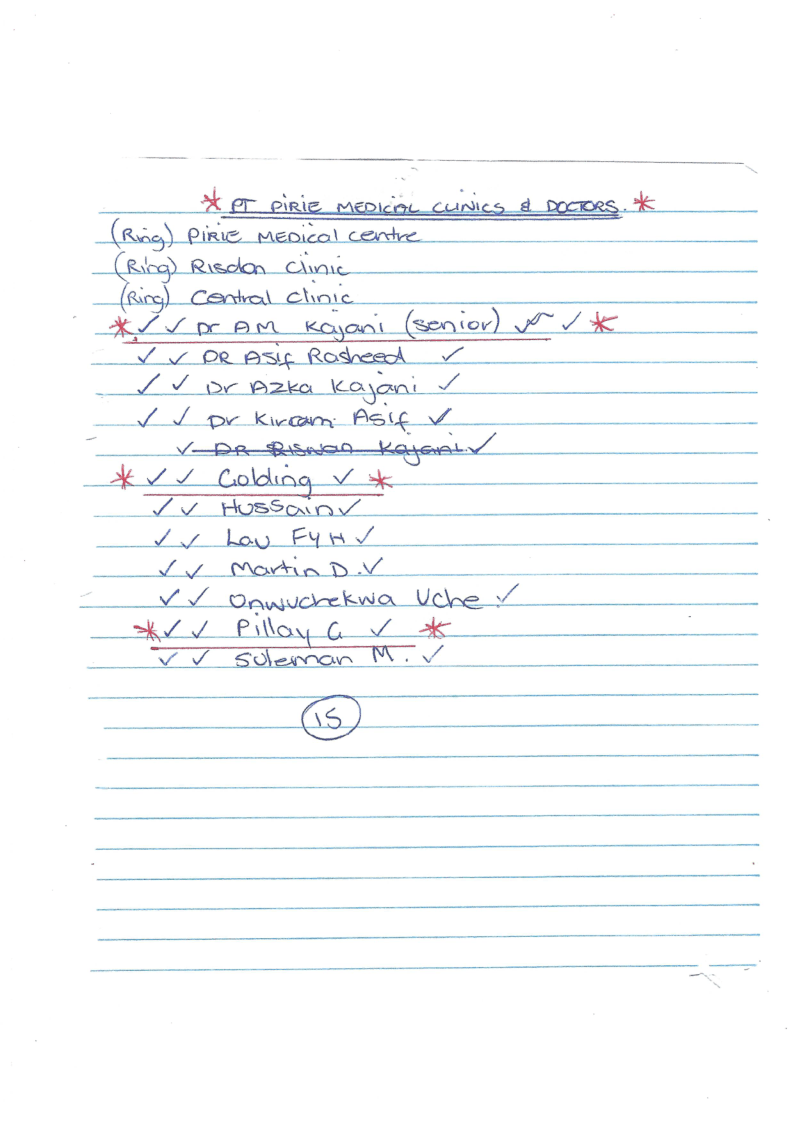 * PT PIRIE MEDICAL CLINICS & DOCTORS. *
(Ring) PIRIE MEDical centre
(Ring) Risdon clinic
(Ring) Central clinic
* ✓ ✓ Dr AM Kajani (senior) ✓ ✓ *
✓ ✓ DR Asif Rasheed ✓
✓ ✓ Dr Azka Kajani ✓
✓ ✓ Dr Kirram Asif ✓
✓ DR RISWAN Kajani ✓
* ✓ ✓ Golding ✓ *
✓ ✓ HUSSain ✓
✓ ✓ Lau FYH ✓
✓ ✓ Martin D. ✓
✓ ✓ Onwuchekwa Uche ✓
* ✓ ✓ Pillay G ✓ *
✓ ✓ Suleman M. ✓
15